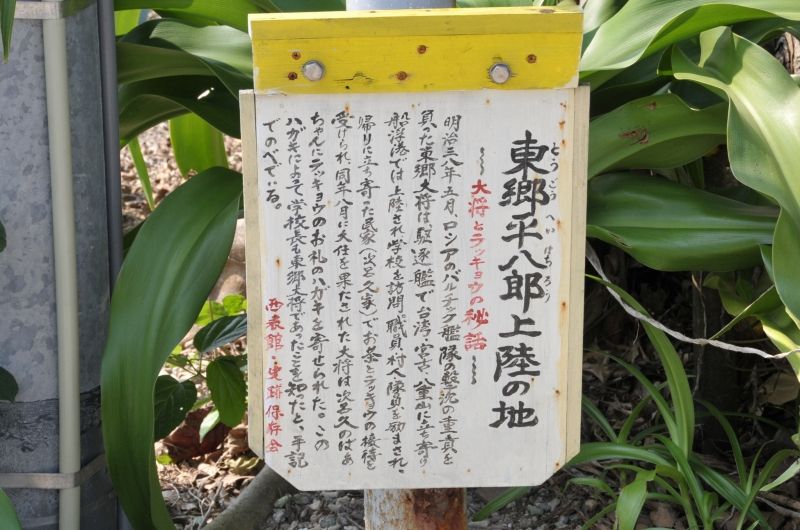 東郷平八郎上陸の地
とうごうへいはちろう
~~~大将とラッキョウの秘話~~~
明治三八年五月、ロシアのバルチック艦隊の撃沈の重責を
負った東郷大将は、駆逐艦で台湾、宮古、八重山に立ち寄り
船浮港では上陸され学校を訪問、職員村人隊員を励まされ、
帰りに立ち寄った民家でお茶とラッキョウの接待を
受けられ、同年八月に大任を果だされた大将は のばあ
ちゃんにラッキョウのお礼のハガキを寄せられた。この
ハガキによって学校長も東郷大将であったことを知ったと、手記
でのべている。
西表館・史跡保存会